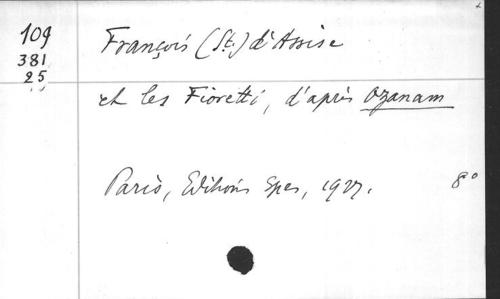 109
381
25
François (St.) d'Assise
et les Fioretti, d'après Ozanam
Paris, Editions Spes, 1927.
8°